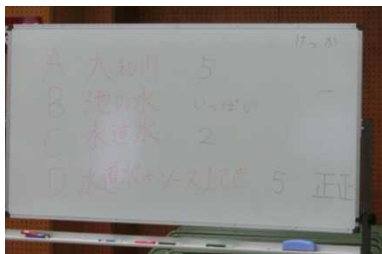 けっか
A 大和川 5
B 池の水 いっぱい
C 水道水 2
D 水道水+ソース1てき 5 正正